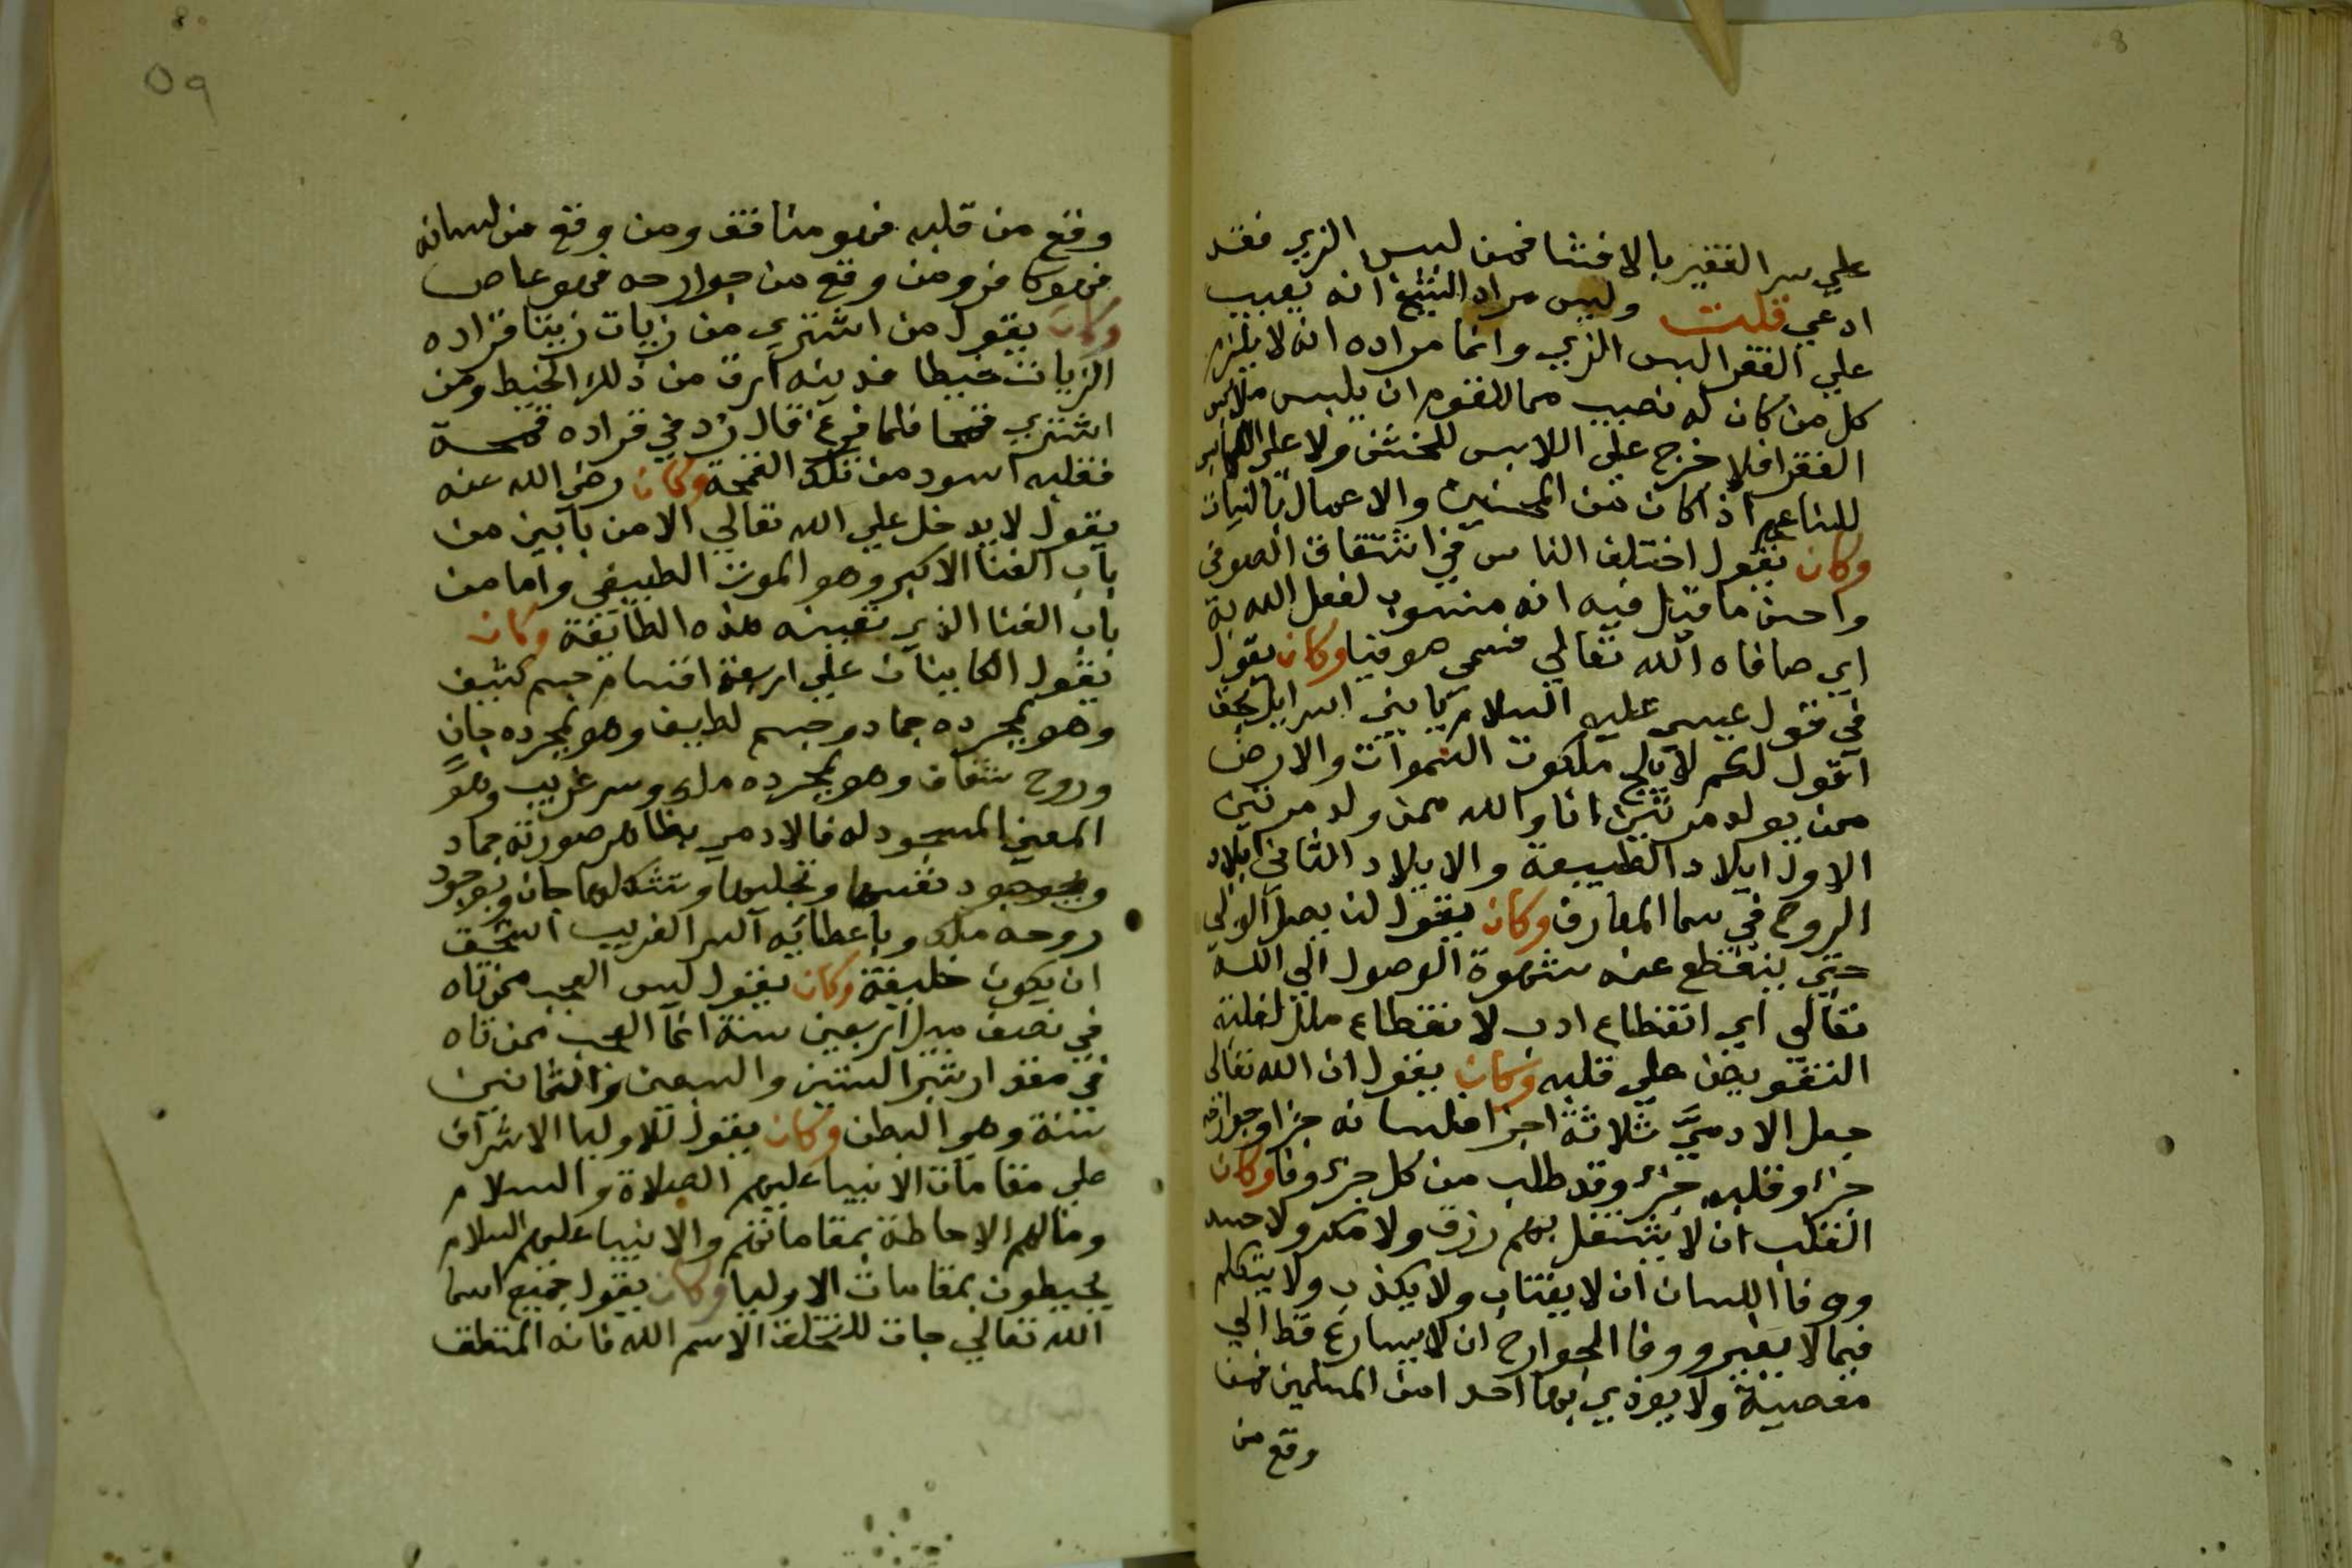 علي سر الفقير بالافشا فمن لبس الزي فقد
ادعي قلت وليس مراد الشيخ انه يعيب
علي الفقرا لبس الزي وانما مراده انه لا يلزم
كل من كان له نصيب مما للقوم ان يلبس ملابس
الفقرا فلا حرج علي اللابس للخشن ولا علي اللابس
للناعم اذا كان من المحسنين والاعمال بالنيات
وكان يقول اختلف الناس في اشتقاق الصوفي
واحسن ما قيل فيه انه منسوب لفعل الله به
اي صافاه الله تعالي فسمي صوفيا وكان يقول
في قول عيسي عليه السلام يا بني اسرايل بحق
اقول لكم لا يلج ملكوت السموات والارض
من يولد مرتين انا والله ممن ولد مرتين
الاول ايلاد الطبيعة والايلاد الثاني ايلاد
الروح في سما المعارف وكان يقول لن يصل الولي
حتي ينقطع عنه شهوة الوصول الي الله
تعالي اي انقطاع ادب لا نقطاع ملل لغلبة
التفويض علي قلبه وكان يقول ان الله تعالي
جعل الادمي ثلاثة اجزا فلسانه جزا وجوارحه
جزا وقلبه جزء وقد طلب من كل جزء وفا وكان
القلب ان لا يشتغل بهم رزق ولا مكر ولا حسد
ووفا اللسان ان لا يغتاب ولا يكذب ولا يتكلم
فيما لا يعنيه ووفا الجوارح ان لا يسارع قط الي
معصية ولا يوذي بها احدا من المسلمين فمن
وقع من
٥٩
وقع من قلبه فهو منافق ومن وقع من لسانه
فهو كافر ومن وقع من جوارحه فهو عاص
وكان يقول من اشتري من زيات زيتا فزاده
الزيات خيطا فدينه ارق من ذلك الخيط ومن
اشتري فحما فلما فرغ قال زد في فزاده فحمة
فقلبه اسود من تلك الفحمة وكان رضي الله عنه
يقول لا يدخل علي الله تعالي الا من بابين من
باب الفنا الاكبر وهو الموت الطبيعي واما من
باب الفنا الذي تعينه هذه الطائفة وكان
يقول الكاينات علي اربعة اقسام جسم كثيف
وهو بمجرده جماد وجسم لطيف وهو بمجرده جان
وروح شفاف وهو بمجرده ملك وسر غريب وهو
المعني المسجود له فالادمي بظاهر صورته جماد
وبوجود نفسها وتجليها وتشكلها جان وبوجود
روحه ملك وباعطائه السر الغريب استحق
ان يكون خليفة وكان يقول ليس العجب ممن تاه
في نصف ميل اربعين سنة انما العجب ممن تاه
في مقدار شبر الستين والسبعين والثمانين
سنة وهي البطن وكان يقول للاوليا الاشراف
علي مقامات الانبيا عليهم الصلاة والسلام
وما لهم الاحاطة بمقاماتهم والانبيا عليهم السلام
يحيطون بمقامات الاوليا وكان يقول جميع اسما
الله تعالي جات للتخلق الا اسم الله فانه للتعلق